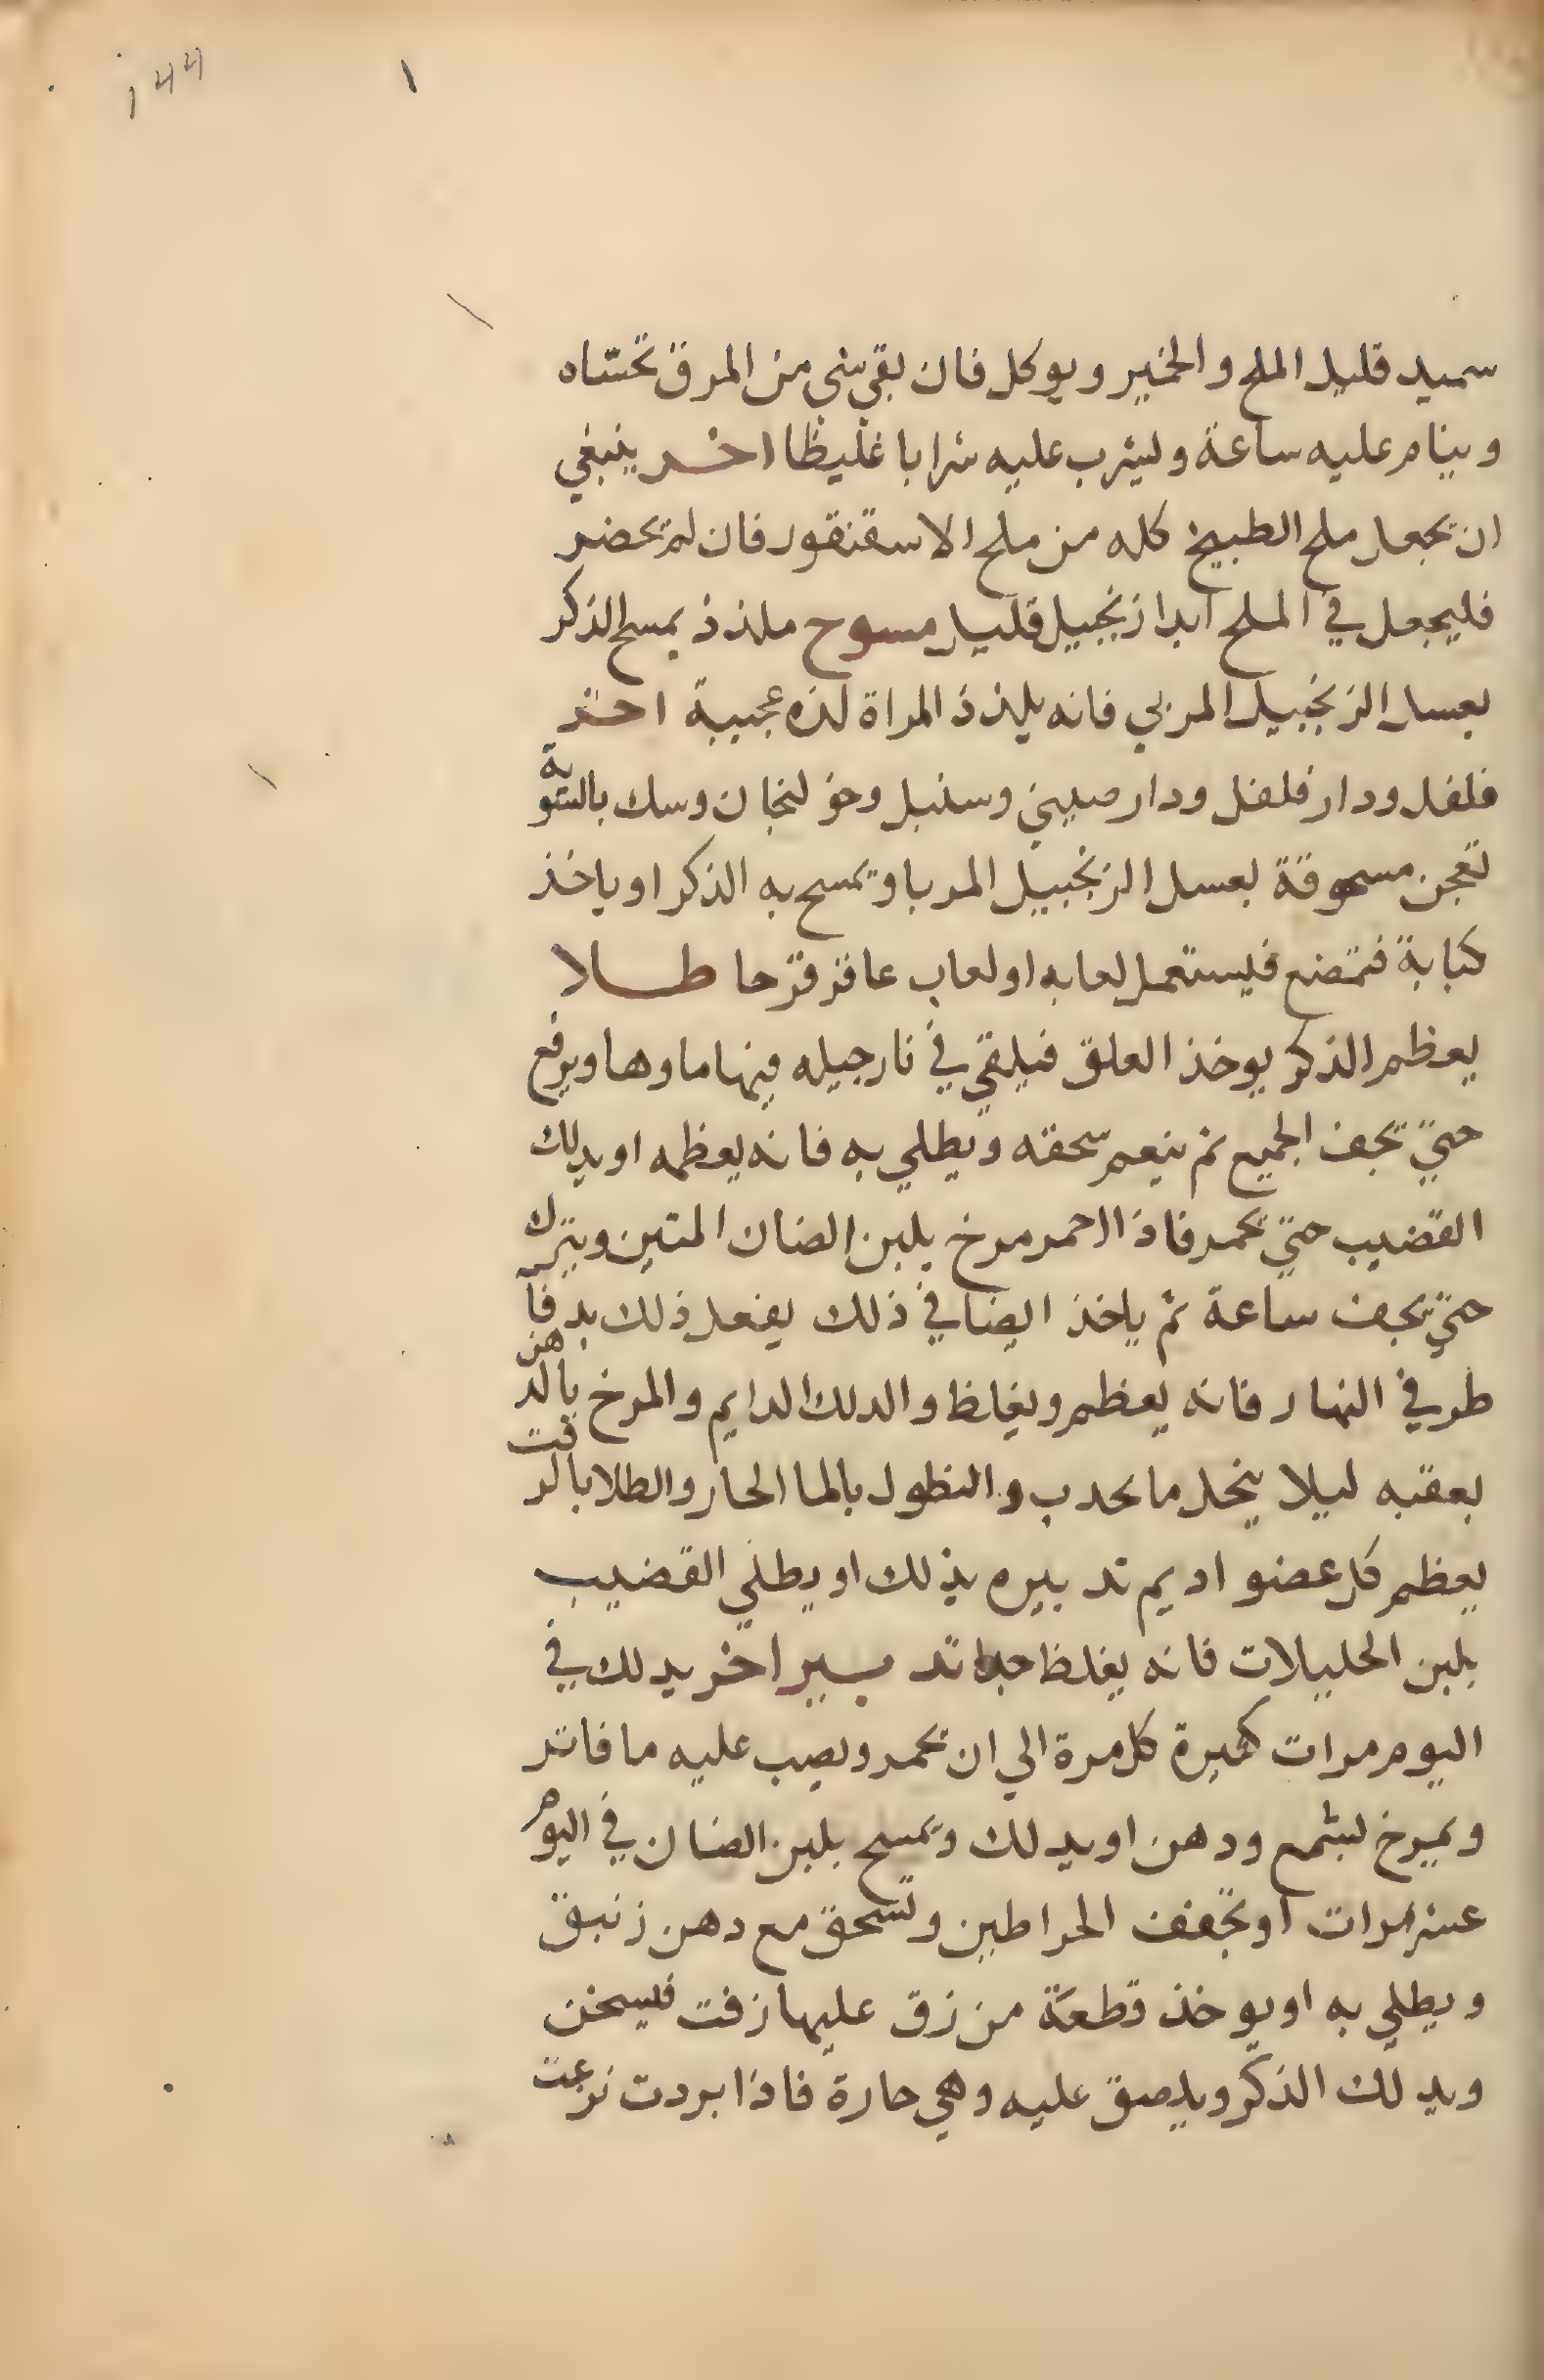 ١٤٤
١
سميد قليل الملح والخمير ويوكل فان بقي شي من المرق تحسّاه
وينام عليه ساعة وليشرب عليه شرابا غليظا اخر ينبغي
ان تجعل ملح الطبيخ كله من ملح الاسقنقور فان لم تحضر
فليجعل في الملح ابدا زنجبيل قليل مسوح ملذذ يمسح الذكر
بعسل الزنجبيل المربي فانه يلذذ المراة لذه عجيبة اخر
فلفل ودار فلفل ودار صيني وسنبل وخولنجان وسك بالسّوية
تعجن مسحوقة بعسل الزنجبيل المربا وتمسح به الذكر او ياخذ
كبابة فتمضع فيستعمل لعابه او لعاب عاقر قرحا طلا
يعظم الذكر يوخذ العلق فيلقي في نارجيله فيها ماوها ويرفع
حتي تجف الجميع ثم ينعم سحقه ويطلي به فانه يعظمه او يدلك
القضيب حتي تحمر فاذا احمر مرخ بلبن الضان المتين ويترك
حتي تجف ساعة ثم ياخذ ايضا في ذلك يفعل ذلك به فا
طرفي النهار فانه يعظم ويغلظ والدلك الدايم والمرخ بالدهن
بعقبه ليلا ينحل ما تحدب والنطول بالما الحار والطلا بالزفت
يعظم كل عضو اديم تدبيره بذلك او يطلي القضيب
بلبن الحليلات فانه يغلظ جدا تدبير اخر يدلك في
اليوم مرات كثيرة كل مرة الي ان تحمر ويصب عليه ما فاتر
ويمرخ لشمع ودهن او يدلك ويمسح بلبن الضان في اليوم
عشر مرات او تجفف الخراطين وتسحق مع دهن زنبق
ويطلي به او يوخذ قطعة من زق عليها زفت فليسخن
ويدلك الذكر ويلصق عليه وهي حارة فاذا بردت نزعت